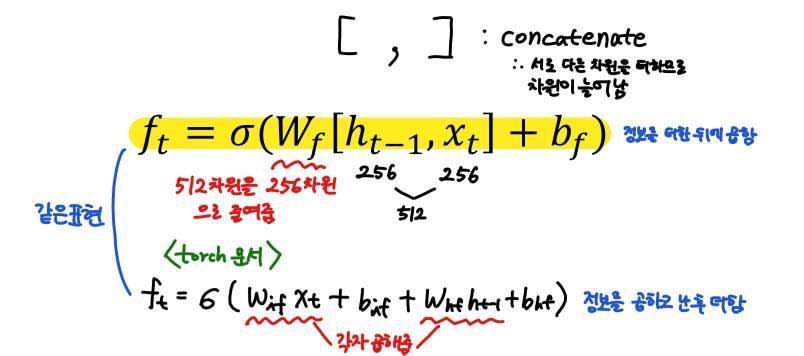 [ , ] : concatenate
∴ 서로 다른 차원을 더하므로
차원이 늘어남
f_t = σ(W_f[h_{t-1}, x_t] + b_f) 정보를 더한 뒤에 곱함
256 256
512차원을 256차원
으로 줄여줌
512
같은표현
<torch 문서>
f_t = σ(W_{if} x_t + b_{if} + W_{hf} h_{t-1} + b_{hf}) 정보를 곱하고 난 후 더함
각자 곱해줌